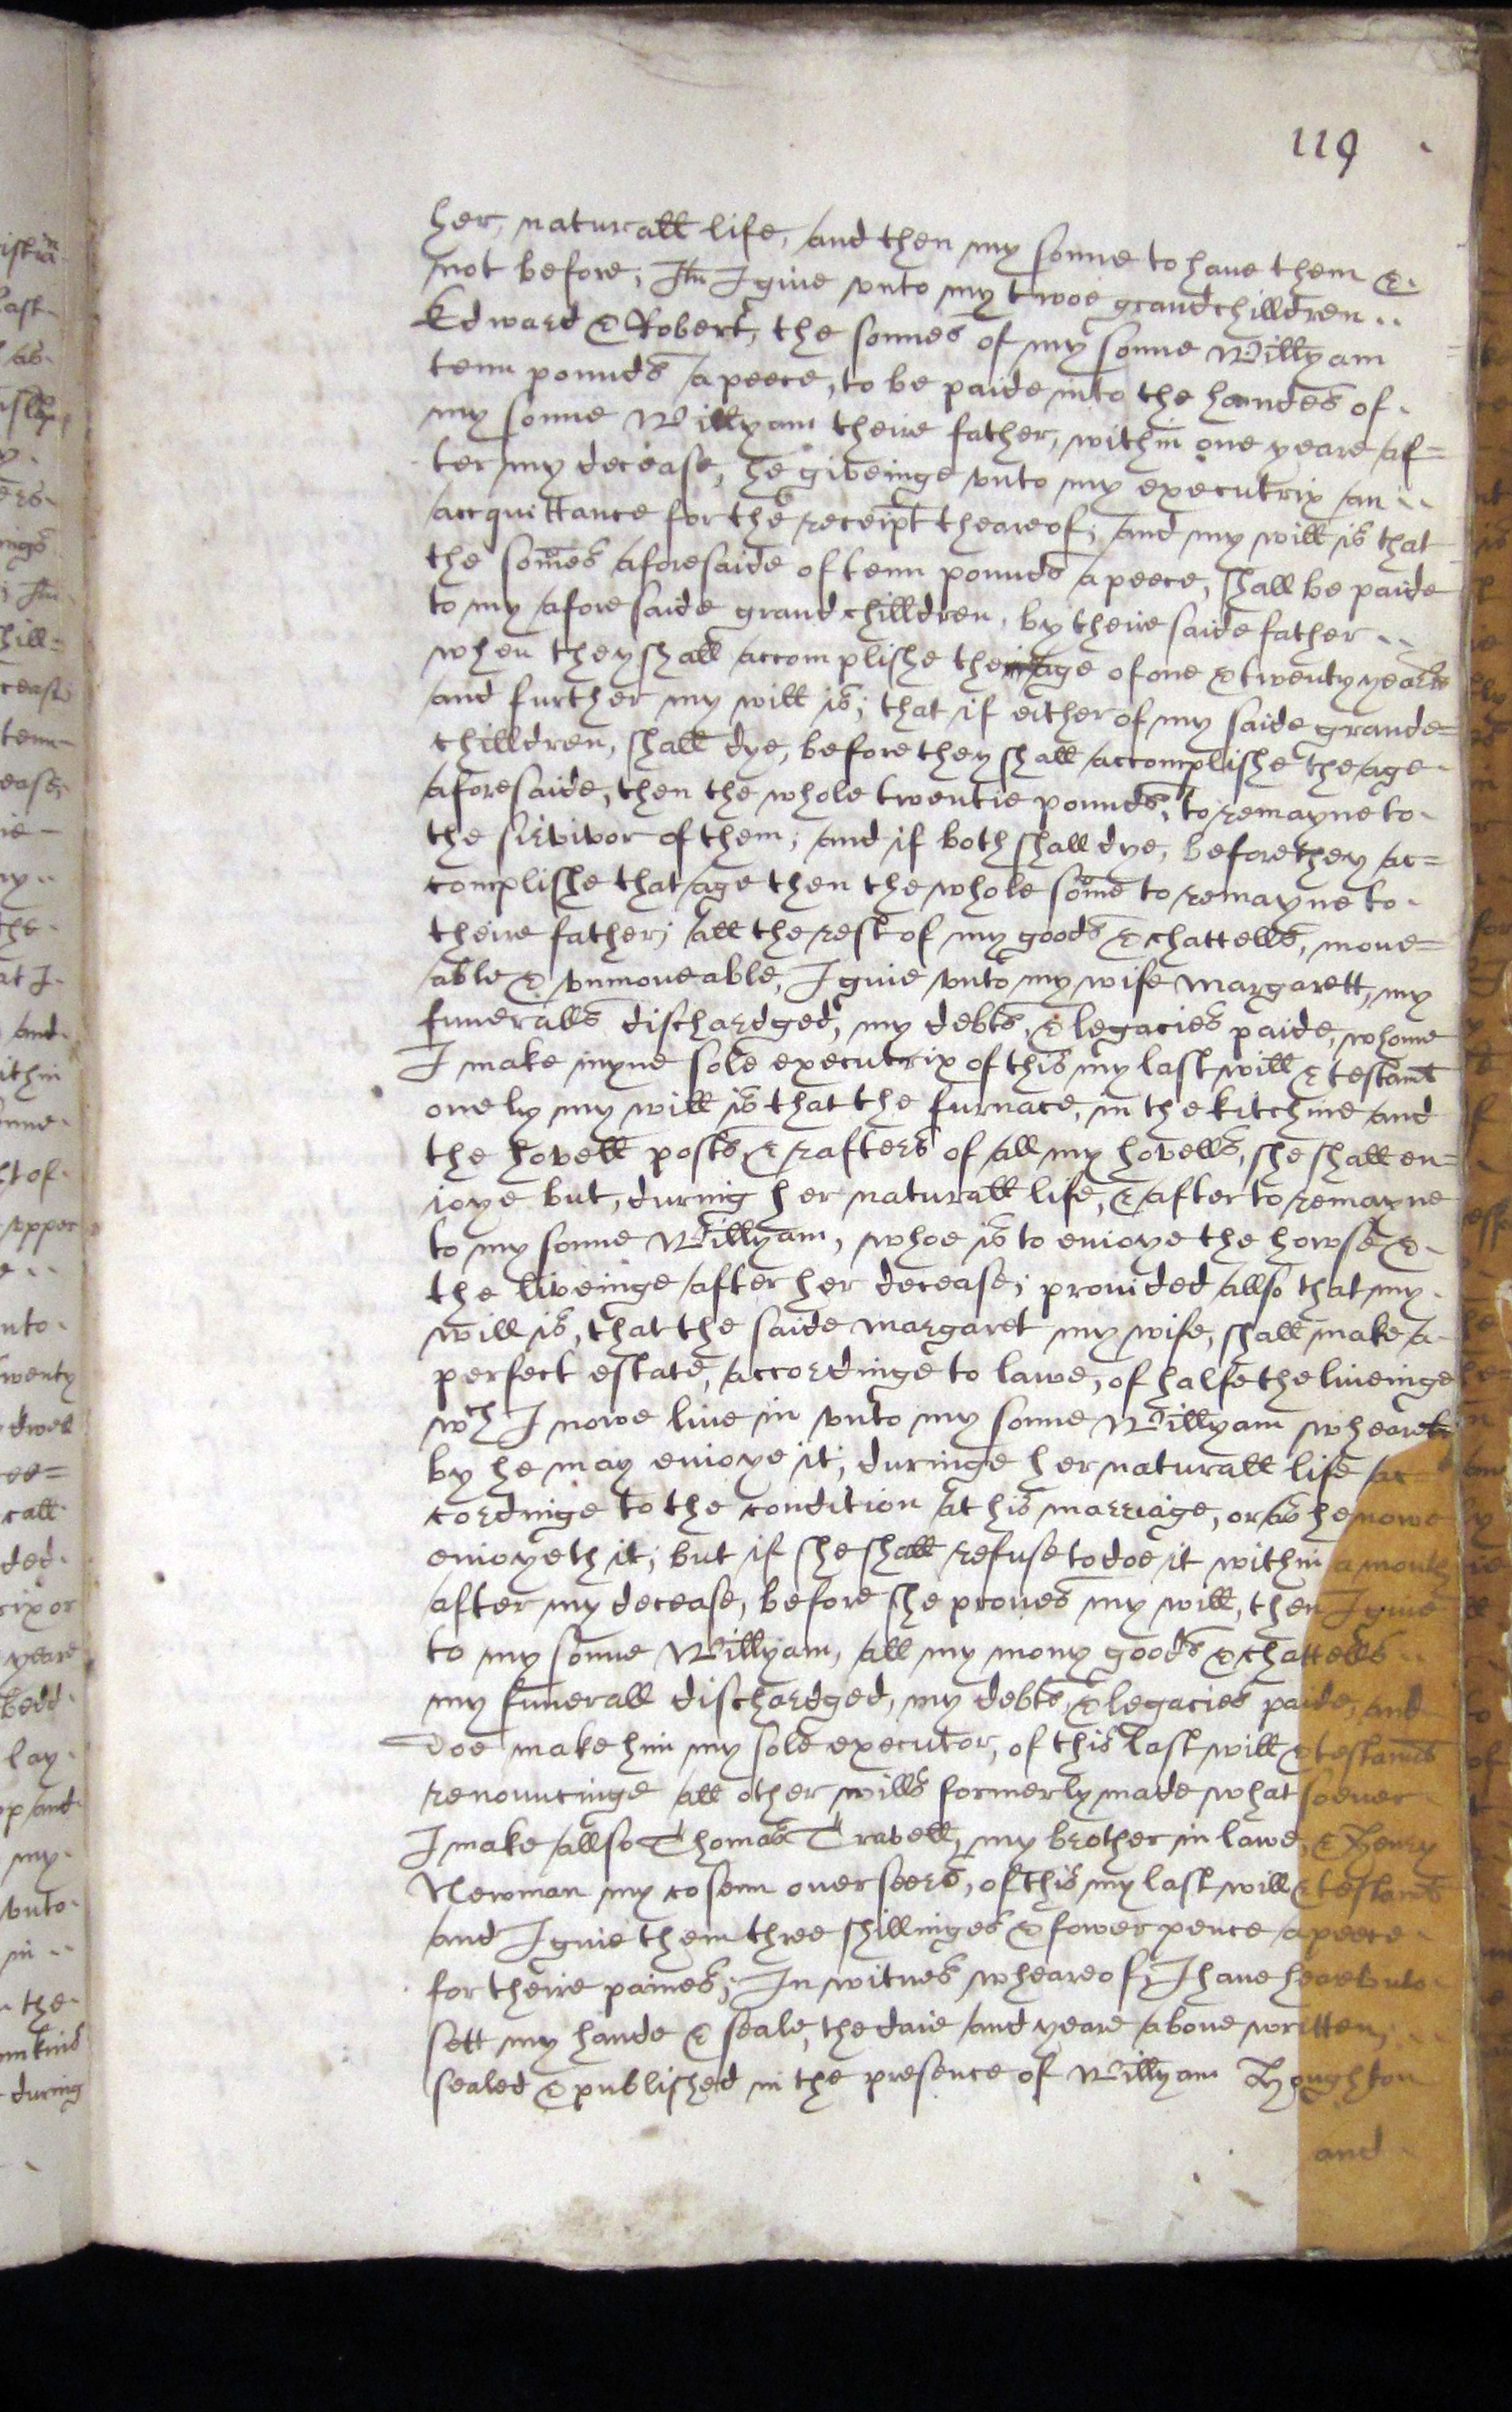 119
her, naturall life, and then my sonne to haue them &
not before; Itm I giue vnto my twoe grandchilldren
Edward & Robert, the sonnes of my sonne Willyam
tenn pounds apeece, to be paide into the handes of
my sonne Willyam theire father, within one yeare af=
ter my decease, he giveinge vnto my executrix an
acquittance for the receipt theareof; and my will is that
the somes aforesaide of tenn pounds apeece, shall be paide
to my aforesaide grandchilldren, by theire saide father
when they shall accomplishe the age of one & twenty yeares
and further my will is; that if either of my saide grande=
chilldren, shall dye, before they shall accomplishe the age
aforesaide, then the whole twentie pounds, to remayne to
the sirvivor of them; and if both shall dye, before they ac=
complishe that age then the whole some to remayne to
theire father; all the rest of my goods & chattells, moue=
able & vnmoueable, I giue vnto my wife Margarett, my
funeralls dischardged, my debts, & legacies paide, whome
I make myne sole executrix of this my last will & testamt
onely my will is that the furnace, in the kitchine and
the hovell posts & rafters of all my hovells, she shall en=
ioye but, during her naturall life, & after to remayne
to my sonne Willyam, whoe is to enioye the howse &
the liveinge after her decease; prouided allso that my
will is, that the saide Margaret my wife, shall make a
perfect estate, accordinge to lawe, of halfe the liueinge
wch I nowe liue in vnto my sonne Willyam wheare
by he may enioye it, duringe her naturall life ac
cordinge to the condition at his marriage, or as he nowe
enioyeth it; but if she shall refuse to doe it within a month
after my decease, before she proues my will, then I giue
to my sonne Willyam, all my mony goods & chattells
my funerall dischardged, my debts, & legacies paide, and
doe make him my sole executor, of this last will & testamt
renouncinge all other wills formerly made whatsoeuer
I make allso Thomas Travell, my brother in lawe, & Henry
Newman my cosenn ouerseers, of this my last will & testamt
and I giue them three shillinges & fower pence apeece
for theire paines; In witnes wheareof, I haue hearevnto
sett my hande & seale, the daie and yeare above written,
sealed & published in the presence of Willyam Houghton
and